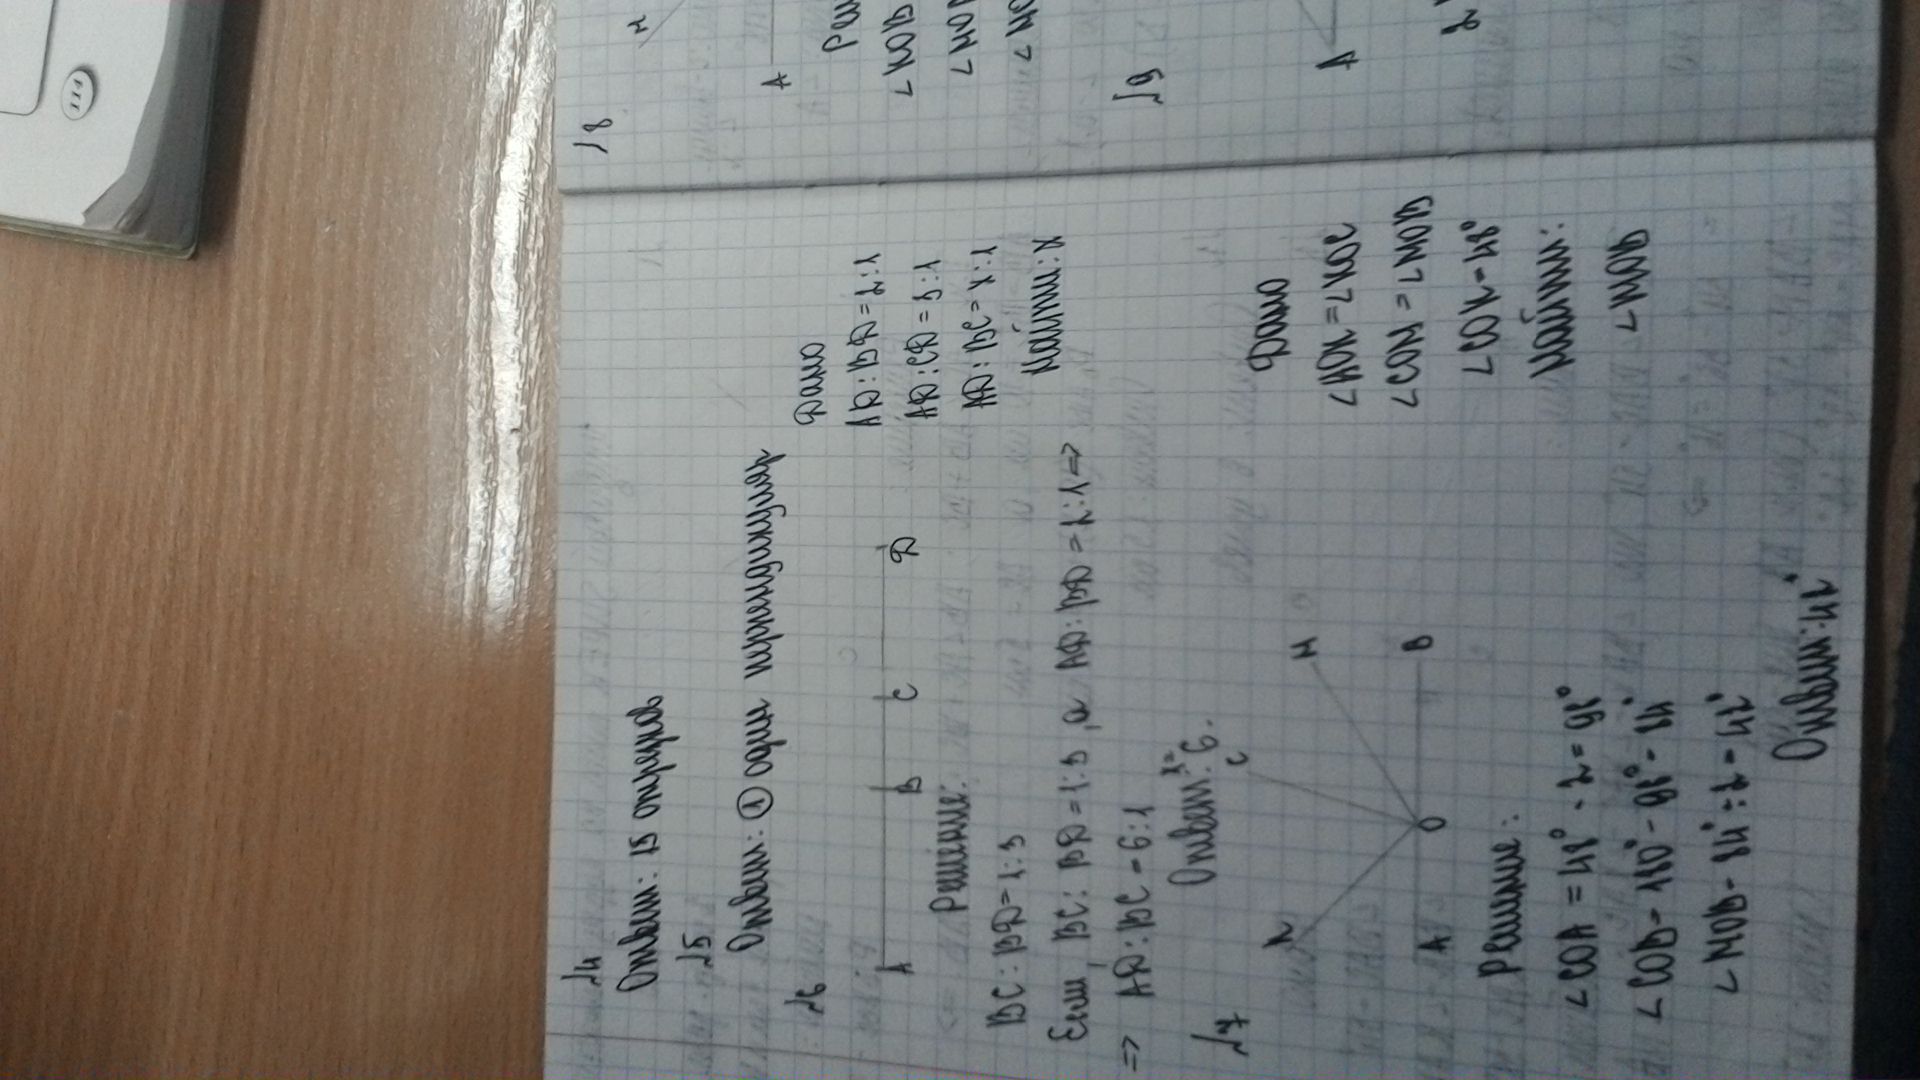 №4
Ответ: 15 отрезков
№5
Ответ: ① один перпендикуляр
№6
Дано
AD : BD = 2:1
AD : CD = 3:1
AD : BC = x:1
Найти: x
A B C D
Решение:
BC : BD = 1:3
Если BC : BD = 1:3, а AD : BD = 2:1 =>
=> AD : BC = 6:1
Ответ: x= 6.
№7
Дано
<AOK = <KOC
<COM = <MOB
<COK = 48°
Найти:
<MOB
K C M
A O B
Решение:
<COA = 48° · 2 = 98°
<COB = 180° - 98° = 84°
<MOB = 84° : 2 = 42°
Ответ: 42°
№8
A
<KOB
<MO
<MO
№9
A